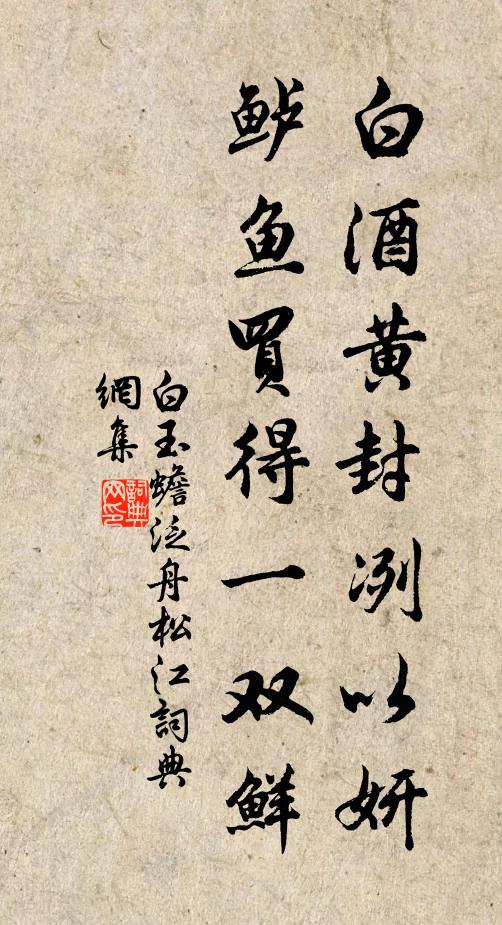 白酒黄封冽以妍
鲈魚買得一双鮮
白玉蟾泛舟松江詞典
網集
詞典
网印